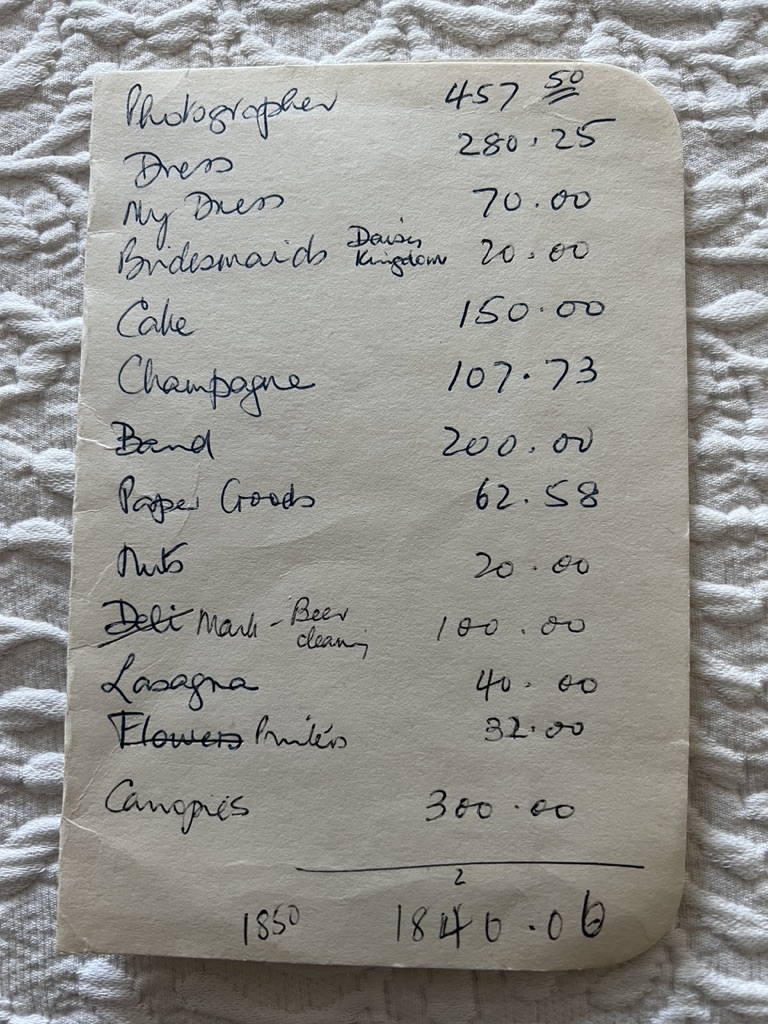 Photographer 457 50
Dress 280.25
My Dress 70.00
Bridesmaids Daisy Kingdom 20.00
Cake 150.00
Champagne 107.73
Band 200.00
Paper Goods 62.58
Nuts 20.00
Deli Mark - Beer cleaning 100.00
Lasagna 40.00
Flowers Printers 32.00
Canopies 300.00
2
1850 1840.06